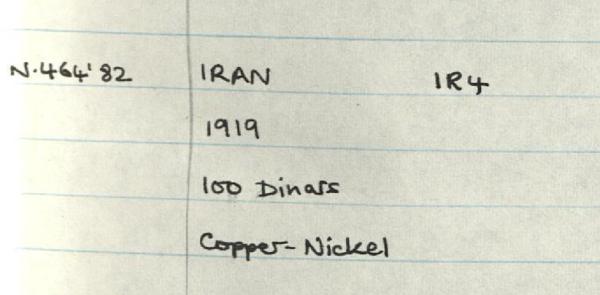 N.464'82 IRAN IR4
1919
100 Dinars
Copper-Nickel